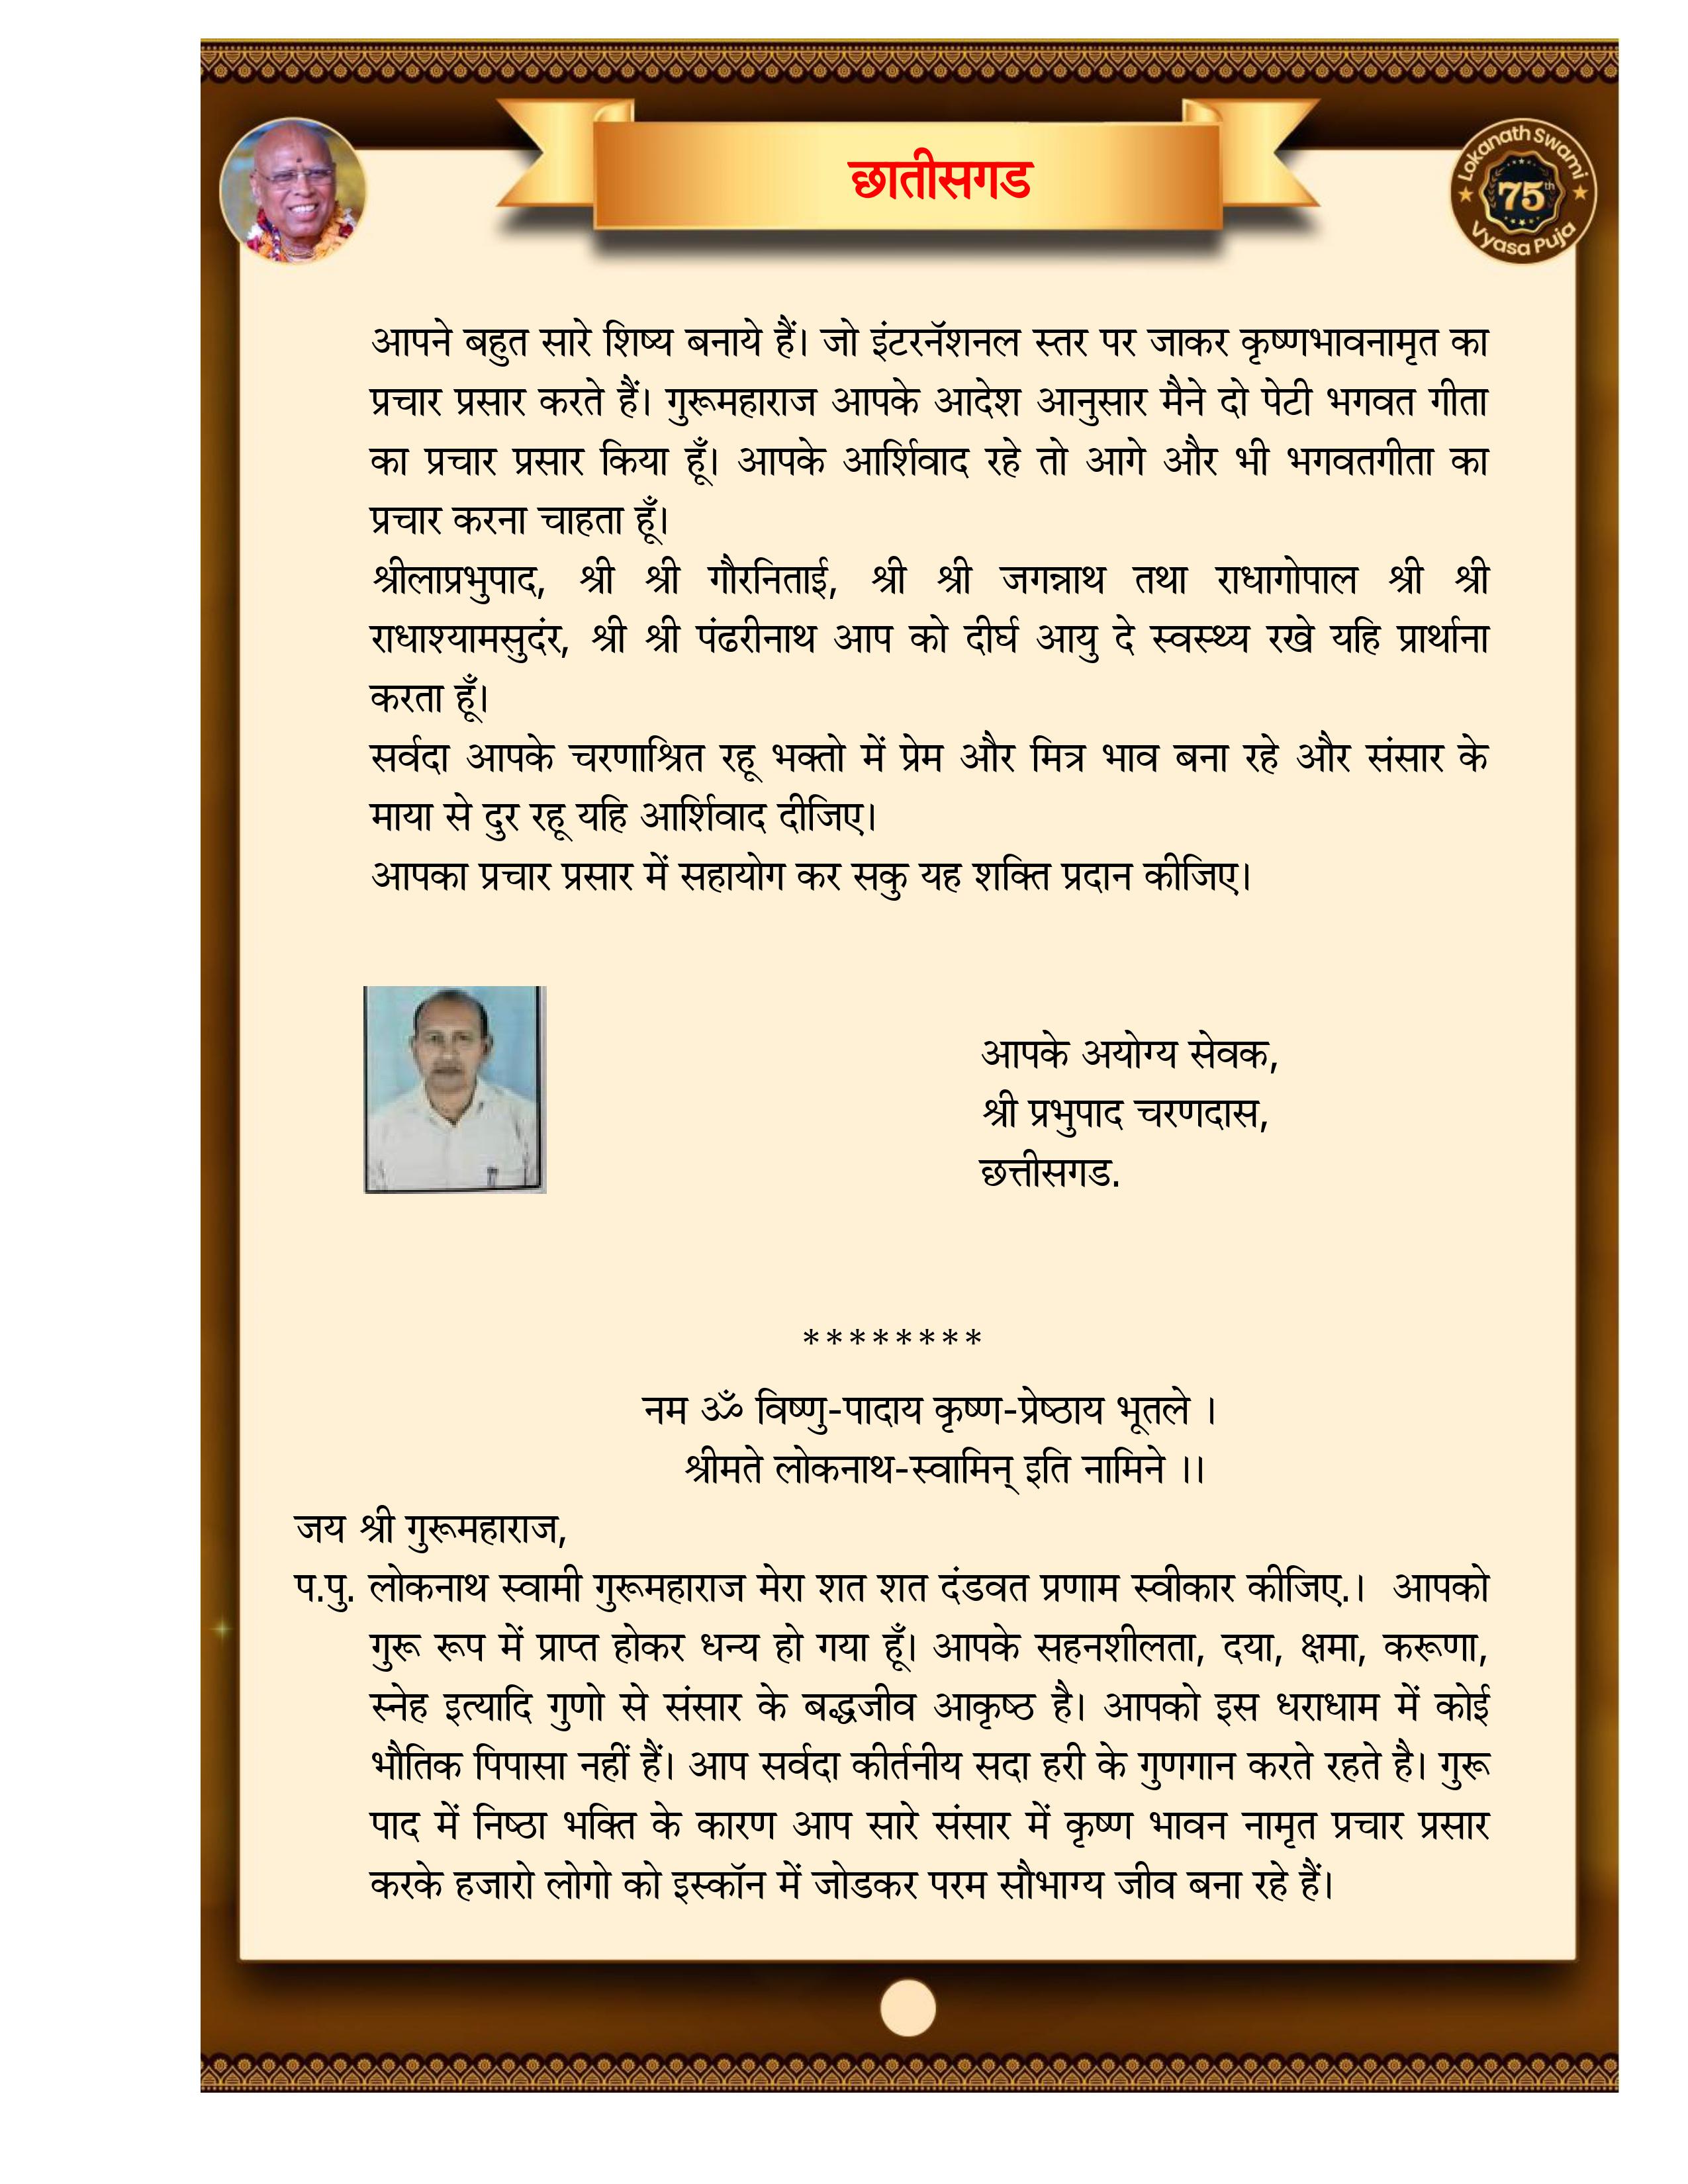 छातीसगड
Lokanath Swami
75th
Vyasa Puja
आपने बहुत सारे शिष्य बनाये हैं। जो इंटरनॅशनल स्तर पर जाकर कृष्णभावनामृत का
प्रचार प्रसार करते हैं। गुरूमहाराज आपके आदेश आनुसार मैने दो पेटी भगवत गीता
का प्रचार प्रसार किया हूँ। आपके आर्शिवाद रहे तो आगे और भी भगवतगीता का
प्रचार करना चाहता हूँ।
श्रीलाप्रभुपाद, श्री श्री गौरनिताई, श्री श्री जगन्नाथ तथा राधागोपाल श्री श्री
राधाश्यामसुदंर, श्री श्री पंढरीनाथ आप को दीर्घ आयु दे स्वस्थ्य रखे यहि प्रार्थाना
करता हूँ।
सर्वदा आपके चरणाश्रित रहू भक्तो में प्रेम और मित्र भाव बना रहे और संसार के
माया से दुर रहू यहि आर्शिवाद दीजिए।
आपका प्रचार प्रसार में सहायोग कर सकु यह शक्ति प्रदान कीजिए।
आपके अयोग्य सेवक,
श्री प्रभुपाद चरणदास,
छत्तीसगड.
********
नम ॐ विष्णु-पादाय कृष्ण-प्रेष्ठाय भूतले ।
श्रीमते लोकनाथ-स्वामिन् इति नामिने ।।
जय श्री गुरूमहाराज,
प.पु. लोकनाथ स्वामी गुरूमहाराज मेरा शत शत दंडवत प्रणाम स्वीकार कीजिए.। आपको
गुरू रूप में प्राप्त होकर धन्य हो गया हूँ। आपके सहनशीलता, दया, क्षमा, करूणा,
स्नेह इत्यादि गुणो से संसार के बद्धजीव आकृष्ठ है। आपको इस धराधाम में कोई
भौतिक पिपासा नहीं हैं। आप सर्वदा कीर्तनीय सदा हरी के गुणगान करते रहते है। गुरू
पाद में निष्ठा भक्ति के कारण आप सारे संसार में कृष्ण भावन नामृत प्रचार प्रसार
करके हजारो लोगो को इस्कॉन में जोडकर परम सौभाग्य जीव बना रहे हैं।